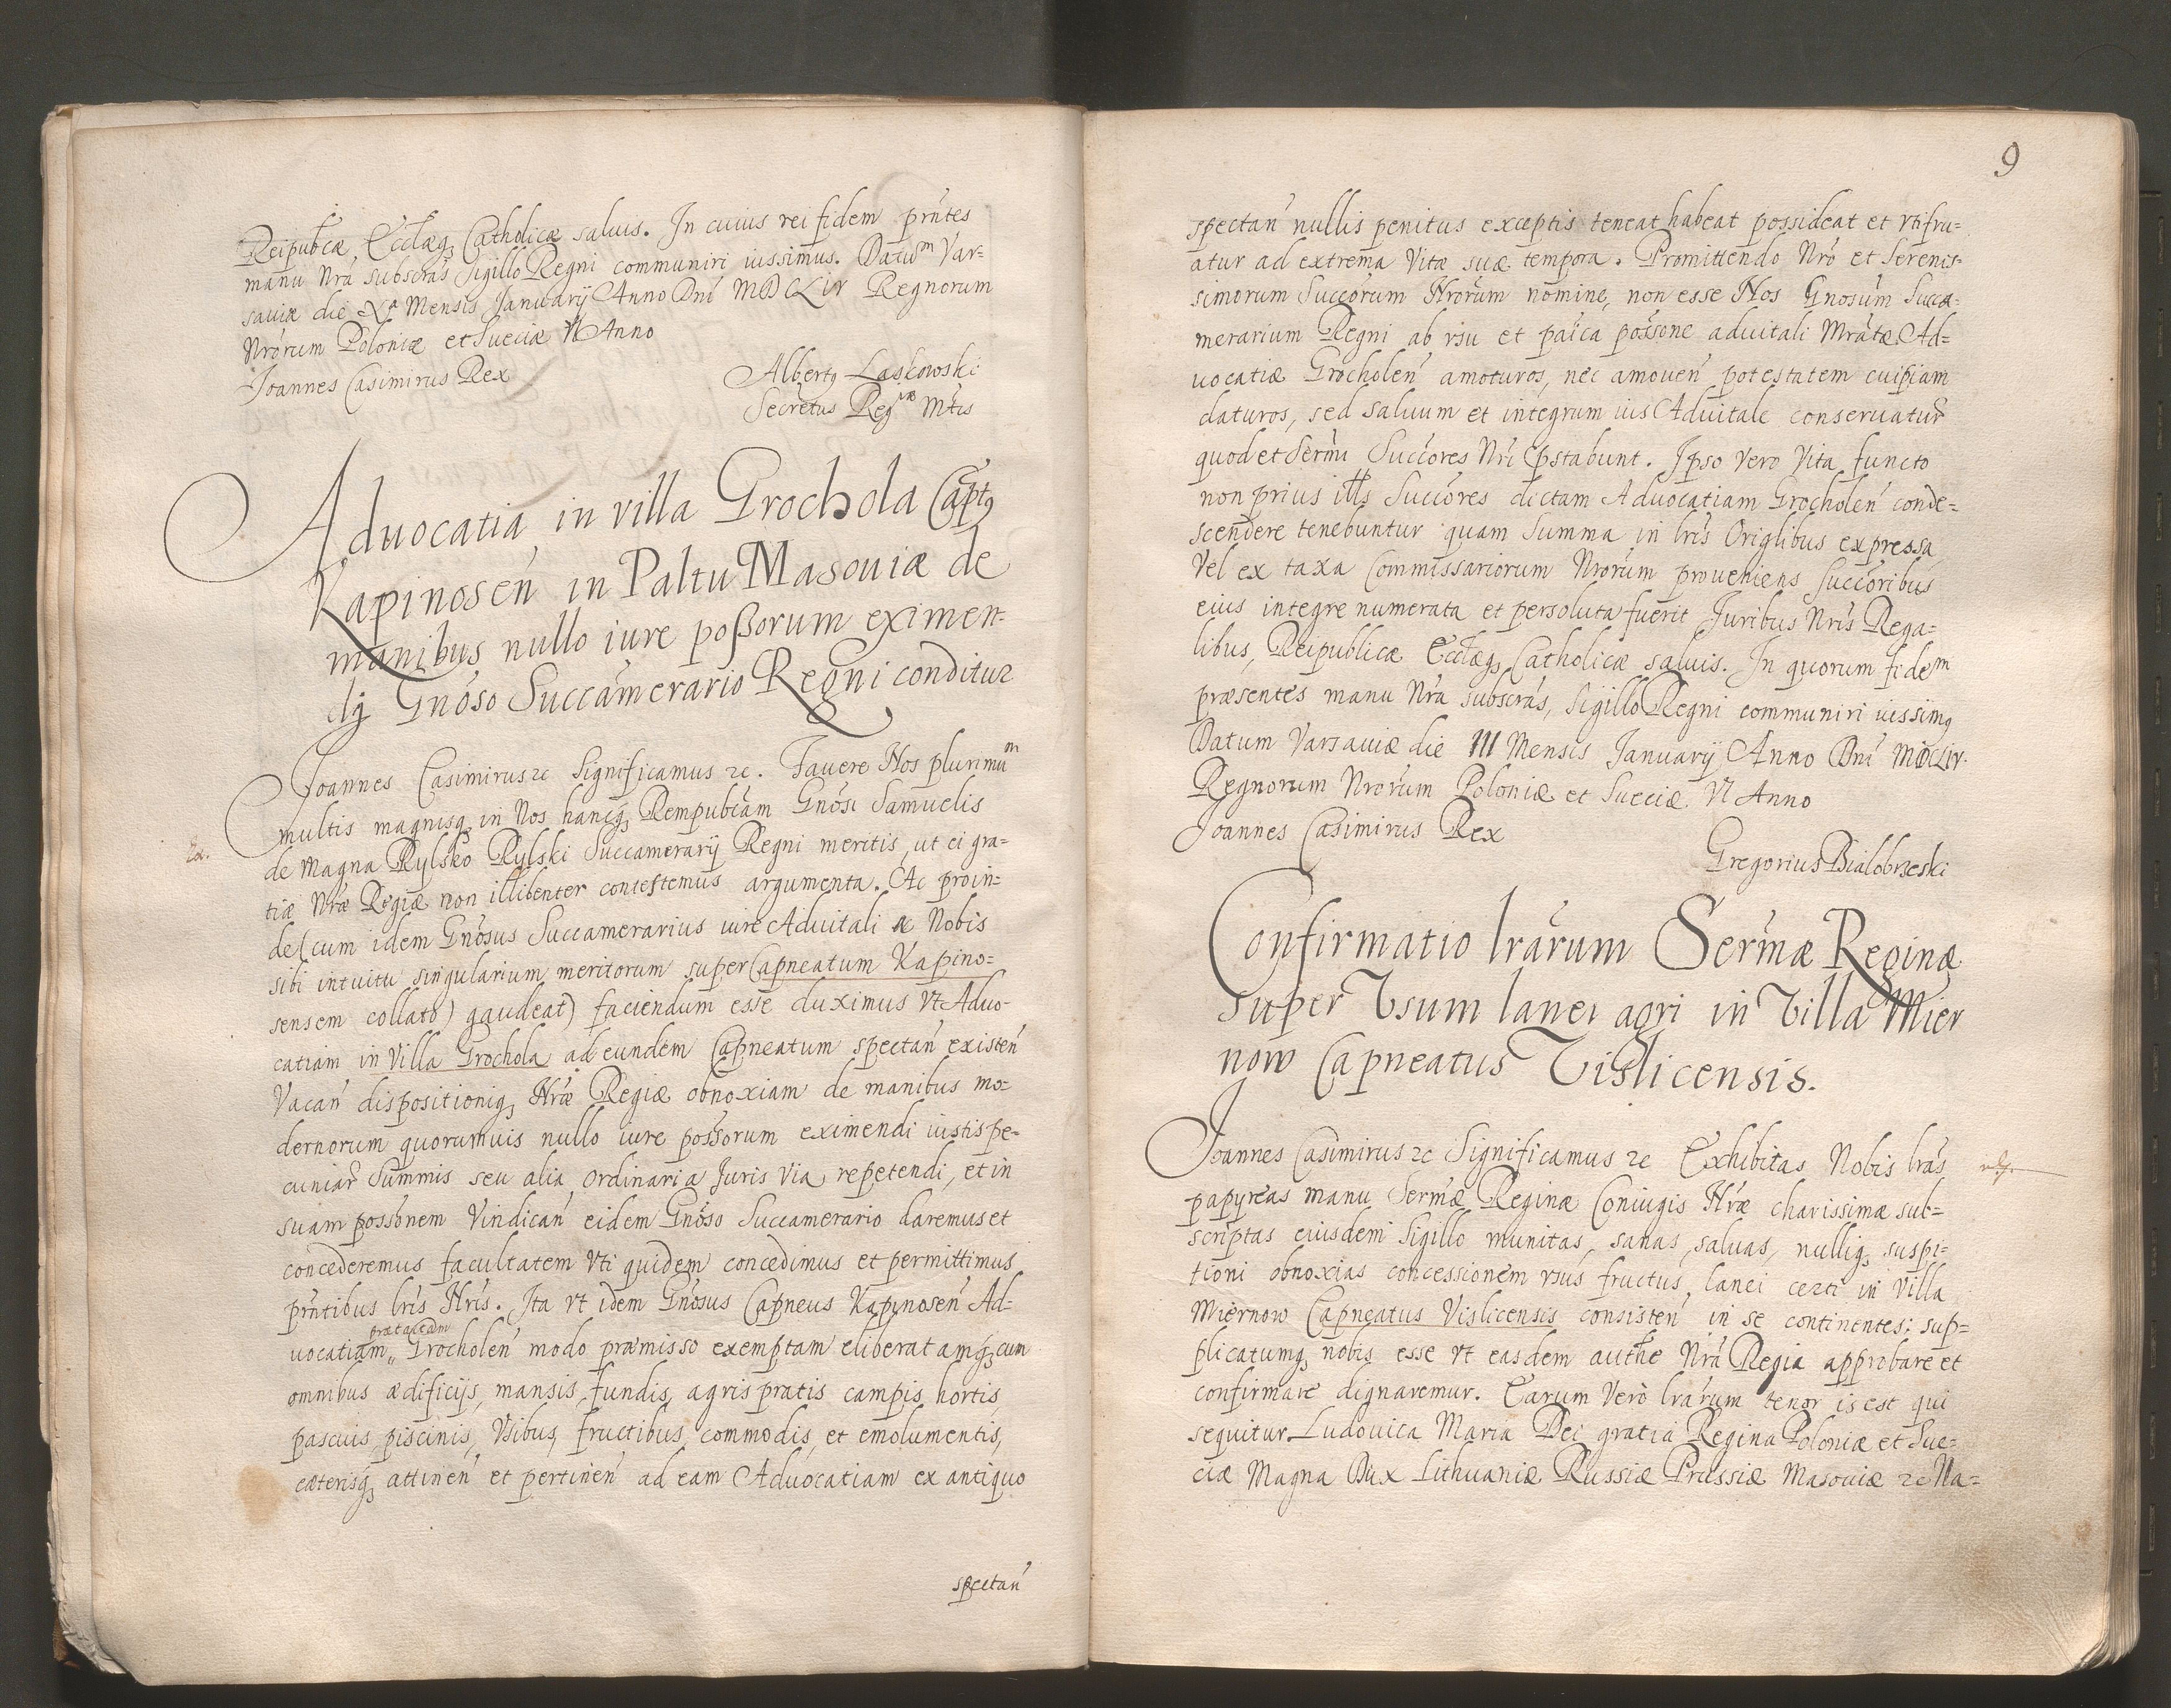 Reipubcæ Ecclæq₃ Catholicæ saluis. In cuius rei fidem prntes
manu Nra subscras Sigillo Regni communiri iussimus. Datum Var=
sauiæ die Xa Mensis Januarij Anno Dni MDCLIV Regnorum
Nrorum Poloniæ et Sueciæ VI Anno
Joannes Casimirus Rex
Albertꝯ Laskowski
Secretus Regiæ Mtis
Aduocatia in villa Grochola Captꝯ
Kapinosen in Paltu Masouiæ de
manibus nullo iure poßorum eximen-
di Gnoso Succamerario Regni conditur
Joannes Casimirus ꝛc Significamus ꝛc. Fauere Nos plurimum
multis magnisq₃ in Nos hancq₃ Rempubcam Gnosi Samuelis
Ex.
de Magna Rylsko Rylski Succamerarij Regni meritis, ut ei gra=
tiæ Nræ Regiæ non illibenter contestemus argumenta. Ac proin=
de (cum idem Gnosus Succamerarius iure Aduitali a Nobis
sibi intuitu singularium meritorum super Capneatum Kapino=
sensem collato) gaudeat) faciendum esse duximus vt Aduo-
catiam in Villa Grochola ad eundem Capneatum spectan existen
Vacan dispositioniq₃ Nræ Regiæ obnoxiam de manibus mo=
dernorum quorumuis nullo iure possorum eximendi iustis pe-
cuniar Summis seu alia Ordinaria Juris Via repetendi, et in
suam possonem Vindican eidem Gnoso Succamerario daremus et
concederemus facultatem vti quidem concedimus et permittimus
prntibus lris Nris. Ita vt idem Gnosus Capneus Kapinosen Ad=
prætactam
uocatiam„ Grocholen modo præmisso exemptam eliberatamq₃ cum
omnibus ædificijs, mansis, fundis, agris pratis campis hortis
pascuis, piscinis, Vsibus, fructibus, commodis, et emolumentis,
cæterisq₃ attinen et pertinen ad eam Aduocatiam ex antiquo
spectan
9
spectan nullis penitus exceptis teneat habeat possideat et vtifru=
atur ad extrema Vitæ suæ tempora. Promittendo Nro et Serenis-
simorum Succorum Nrorum nomine, non esse Nos Gnosum Succa=
merarium Regni ab vsu et paica possone aduitali Mratæ Ad=
uocatiæ Grocholen amoturos, nec amouen potestatem cuipiam
daturos, sed saluum et integrum ius Aduitale conseruatur
quod et Sermi Succores Nri pstabunt. Ipso vero Vita functo
non prius ills Succores dictam Aduocatiam Grocholen conde=
scendere tenebuntur quam Summa in lris Origlibus expressa
Vel ex taxa Commissariorum Nrorum proueniens Succoribus
eius integre numerata et persoluta fuerit Juribus Nris Rega=
libus, Reipublicæ Ecclæq₃ Catholicæ saluis. In quorum fidem
præsentes manu Nra subscras, Sigillo Regni communiri iussimꝯ
Datum Varsauiæ die III Mensis Januarij Anno Dni MDCLIV.
Regnorum Nrorum Poloniæ et Sueciæ VI Anno
Joannes Casimirus Rex
Gregorius Bialobrzeski
Confirmatio lrarum Sermæ Reginæ
super Vsum lanei agri in Villa Mier
now Capneatus Vislicensis.
Joannes Casimirus ꝛc Significamus ꝛc Exhibitas Nobis lras
papyreas manu Sermæ Reginæ Coniugis Nræ charissimæ sub=
scriptas eiusdem Sigillo munitas, sanas, saluas, nulliq₃ suspi=
tioni obnoxias concessionem vsus fructus, lanei certi in Villa
Miernow Capneatus Vislicensis consisten in se continentes; sup=
plicatumq₃ nobis esse vt easdem authe Nra Regia approbare et
confirmare dignaremur. Earum Vero lrarum tenor is est qui
sequitur. Ludouica Maria Dei gratia Regina Poloniæ et Sue=
ciæ Magna Dux Lithuaniæ Russiæ Prussiæ Masouiæ ꝛc Na=